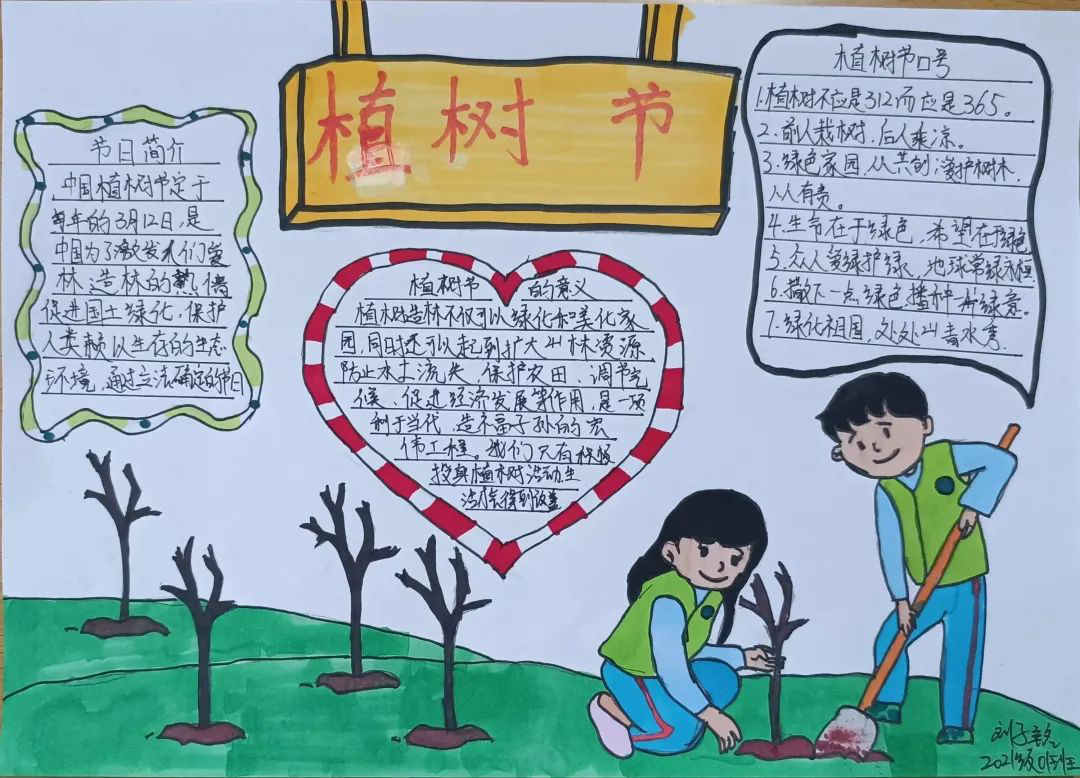 植树节
节日简介
中国植树节定于
每年的3月12日,是
中国为了激发人们爱
林造林的热情
促进国土绿化,保护
人类赖以生存的生态
环境,通过立法确定的节日
植树节 的意义
植树造林不仅可以绿化和美化家
园,同时还可以起到扩大山林资源
防止水土流失、保护农田、调节气
候、促进经济发展等作用,是一项
利于当代,造福子孙的宏
伟工程。我们只有积极
投身植树活动生
活才
植树节口号
1.植树不应是312而应是365。
2.前人栽树,后人乘凉。
3.绿色家园,人人共创,爱护树木,
人人有责。
4.生命在于绿色,希望在于绿色
5.众人爱绿护绿,地球常绿永恒
6.撒下一点绿色播种一片绿意。
7.绿化祖国,处处山青水秀.
刘子
2021级01班